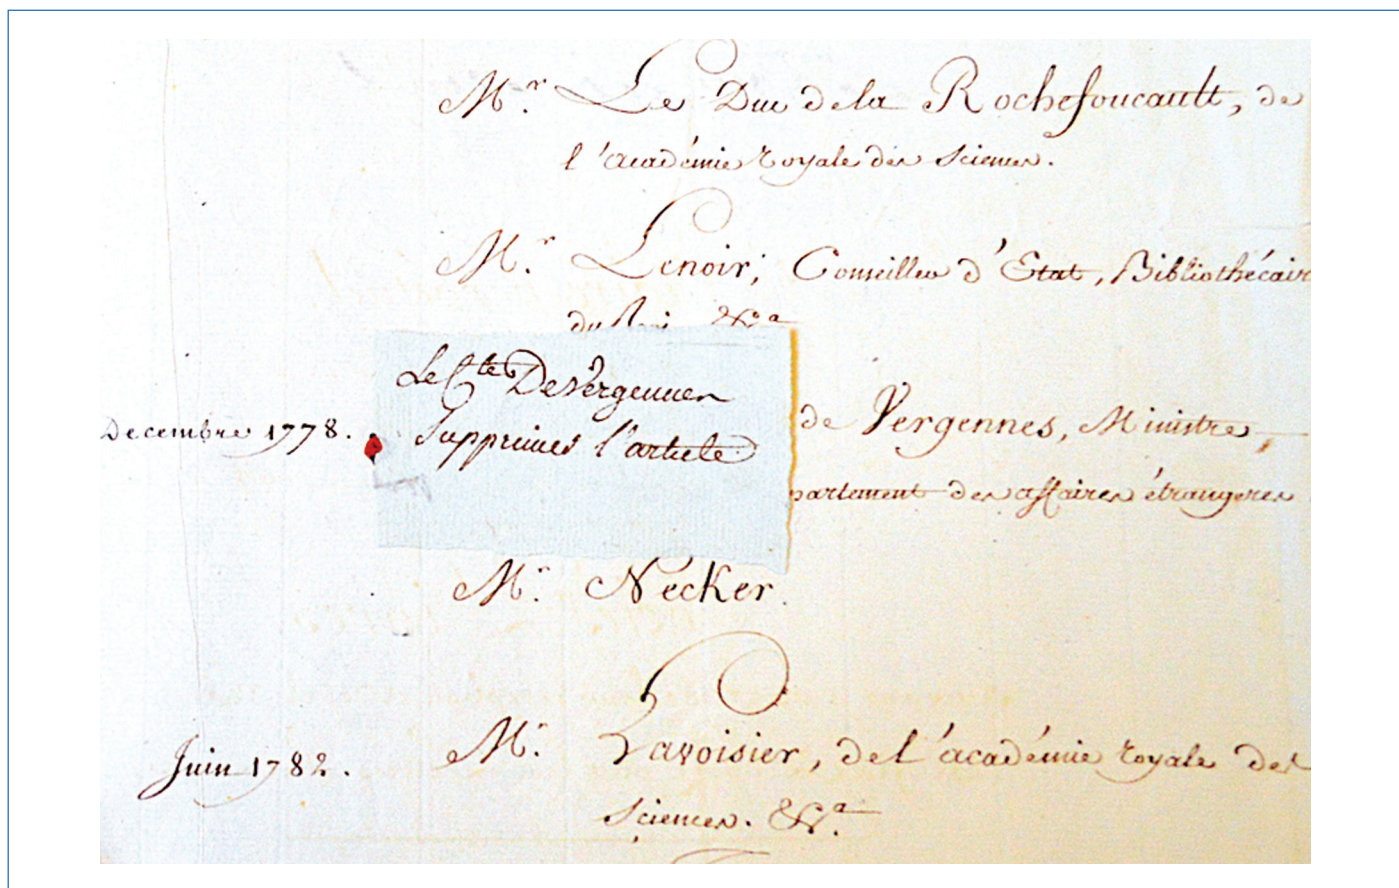 Mr. Le Duc de la Rochefoucault, de
l'académie royale des Sciences.
Mr. Lenoir, Conseiller d'Etat, Bibliothécair
du Roi &ca
Le Cte De Vergennes
Decembre 1778.
Supprimés l'article
de Vergennes, Ministre,
partement des affaires étrangeres
Mr. Necker.
Juin 1782.
Mr. Lavoisier, de l'académie royale des
Sciences. &ca.